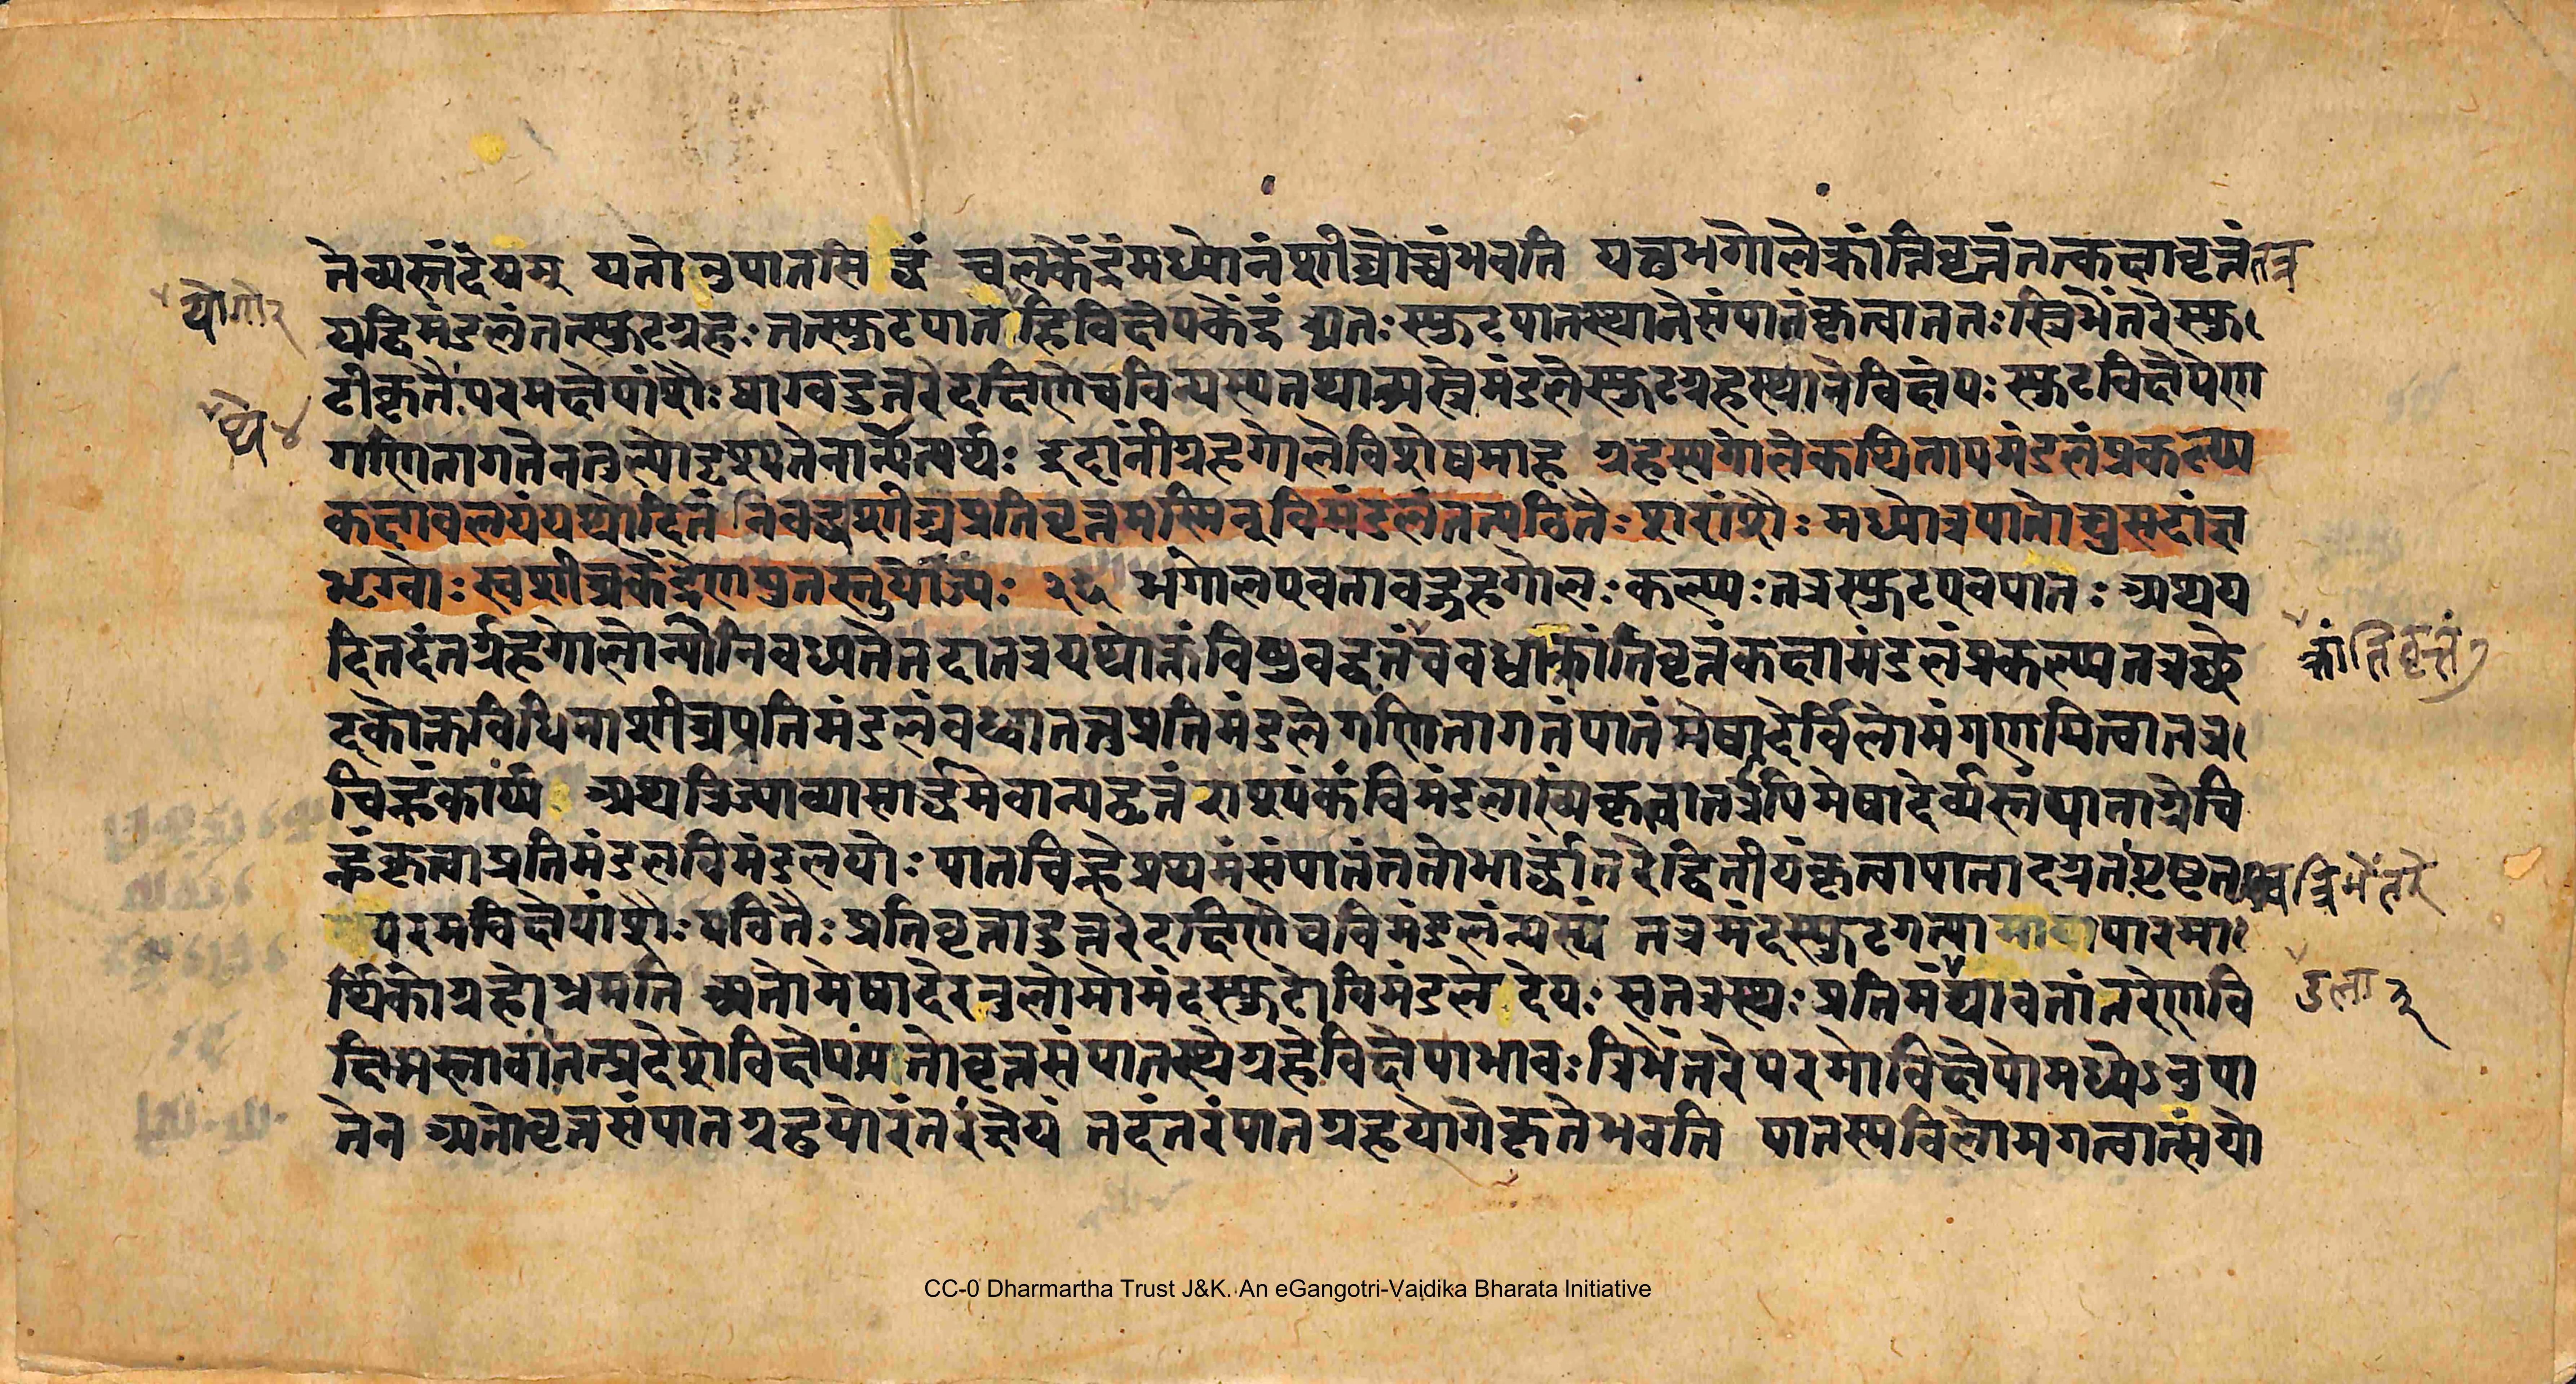 तेव्यस्तंदेयम् यतोनुपातसि द्धं चलकेंद्रंमध्योनंशीघ्रोच्चंभवति यच्चभगोलेक्रांतिवृत्तंतत्कक्षावृत्तंतत्र
योगोर यद्विमंडलंतत्स्फुटग्रहः तत्स्फुटपात हिविक्षेपकेंद्रं अतः स्फुटपातस्थानेसंपातंकृत्वाततः स्त्रिभेंतरेस्फु
टीकृतैः परमक्षेपांशैः प्राग्वदुत्तरेदक्षिणेचविन्यस्यतथान्यस्तेमंडलेस्फुटग्रहस्थानेविक्षेपः स्फुटविक्षेपेण
गणितागतेनतुल्योदृश्यतेनान्येत्यर्थः इदानींग्रहगोलेविशेषमाह ग्रहस्यगोलेकथितापमंडलंप्रकल्प्य
कक्षावलयंयथोदितं निबद्ध्यशीघ्रप्रतिवृत्तमस्मिन्विमंडलंतत्पठितैः शरांशैः मध्योत्रपातोद्युसदांज्ञ
भृग्वोः स्वशीघ्रकेंद्रेणयुतस्तुयोज्यः २५ भगोलएवतावद्ग्रहगोलः कल्प्यः तत्रस्फुटएवपातः अथय
दितदंतर्ग्रहगोलोन्योनिबध्यतेतदातत्रयथोक्तंविषुवद्वृत्तंचबध्वाक्रांतिवृत्तंकक्षामंडलंप्रकल्प्यतत्रछे क्रांतिवृत्तं७
दकोक्तविधिनाशीघ्रप्रतिमंडलंबध्वातत्रप्रतिमंडलेगणितागतंपातंमेषादेर्विलोमंगणयित्वातत्र
चिह्नंकार्यं अथत्रिज्याव्यासार्द्धमेवान्यद्वृत्तंराश्यंकंविमंडलाख्यंकृत्वातत्रापिमेषादेर्व्यस्तंपाताग्रेचि
ह्नंकृत्वाप्रतिमंडलविमंडलयोः पातचिह्नेप्रथमंसंपातंततोभार्द्धांतरेद्वितीयंकृत्वापातादग्रतःपृष्ठत त्रिभेंतरे
परमविक्षेपांशैः पठितैः प्रतिवृत्तादुत्तरेदक्षिणेचविमंडलंन्यस्यं तत्रमंदस्फुटगत्या पारमा
र्थिकोग्रहोभ्रमति अतोमेषादेरनुलोमोमंदस्फुटोविमंडले देयः सतत्रस्थः प्रतिमं यावतांतरेणवि डला३
क्षिप्तस्तावांतत्प्रदेशेविक्षेपः यतोवृत्तसंपातस्थेग्रहेविक्षेपाभावः त्रिभेंतरेपरमोविक्षेपोमध्येऽनुपा
तेन अतोवृत्तसंपातग्रहयोरंतरंज्ञेयं तदंतरंपातग्रहयोगेकृतेभवति पातस्यविलोमगत्वात्संयो
CC-0 Dharmartha Trust J&K. An eGangotri-Vaidika Bharata Initiative